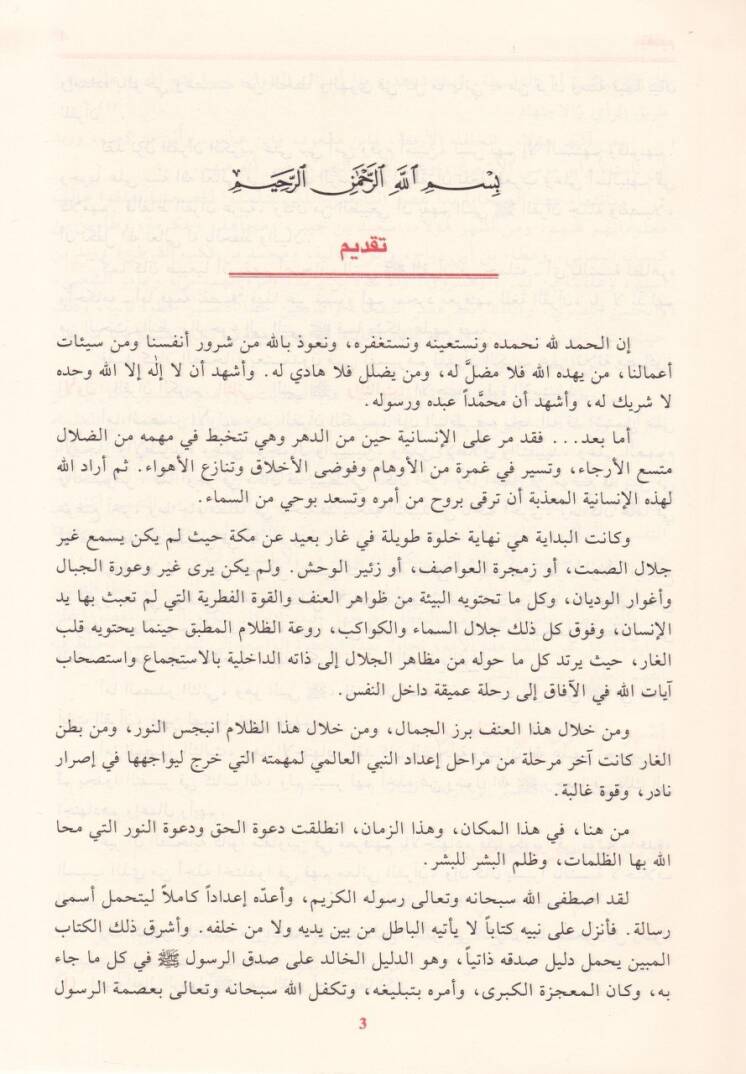 بِسْمِ اللَّهِ الرَّحْمَنِ الرَّحِيمِ
تقديم
إن الحمد لله نحمده ونستعينه ونستغفره، ونعوذ بالله من شرور أنفسنا ومن سيئات
أعمالنا، من يهده الله فلا مضلَّ له، ومن يضلل فلا هادي له. وأشهد أن لا إلٰه إلا الله وحده
لا شريك له، وأشهد أن محمَّداً عبده ورسوله.
أما بعد... فقد مر على الإنسانية حين من الدهر وهي تتخبط في مهمه من الضلال
متسع الأرجاء، وتسير في غمرة من الأوهام وفوضى الأخلاق وتنازع الأهواء. ثم أراد الله
لهذه الإنسانية المعذبة أن ترقى بروح من أمره وتسعد بوحي من السماء.
وكانت البداية هي نهاية خلوة طويلة في غار بعيد عن مكة حيث لم يكن يسمع غير
جلال الصمت، أو زمجرة العواصف، أو زئير الوحش. ولم يكن يرى غير وعورة الجبال
وأغوار الوديان، وكل ما تحتويه البيئة من ظواهر العنف والقوة الفطرية التي لم تعبث بها يد
الإنسان، وفوق كل ذلك جلال السماء والكواكب، روعة الظلام المطبق حينما يحتويه قلب
الغار، حيث يرتد كل ما حوله من مظاهر الجلال إلى ذاته الداخلية بالاستجماع واستصحاب
آيات الله في الآفاق إلى رحلة عميقة داخل النفس.
ومن خلال هذا العنف برز الجمال، ومن خلال هذا الظلام انبجس النور، ومن بطن
الغار كانت آخر مرحلة من مراحل إعداد النبي العالمي لمهمته التي خرج ليواجهها في إصرار
نادر، وقوة غالبة.
من هنا، في هذا المكان، وهذا الزمان، انطلقت دعوة الحق ودعوة النور التي محا
الله بها الظلمات، وظلم البشر للبشر.
لقد اصطفى الله سبحانه وتعالى رسوله الكريم، وأعدّه إعداداً كاملاً ليتحمل أسمى
رسالة. فأنزل على نبيه كتاباً لا يأتيه الباطل من بين يديه ولا من خلفه. وأشرق ذلك الكتاب
المبين يحمل دليل صدقه ذاتياً، وهو الدليل الخالد على صدق الرسول ﷺ في كل ما جاء
به، وكان المعجزة الكبرى، وأمره بتبليغه، وتكفل الله سبحانه وتعالى بعصمة الرسول
3